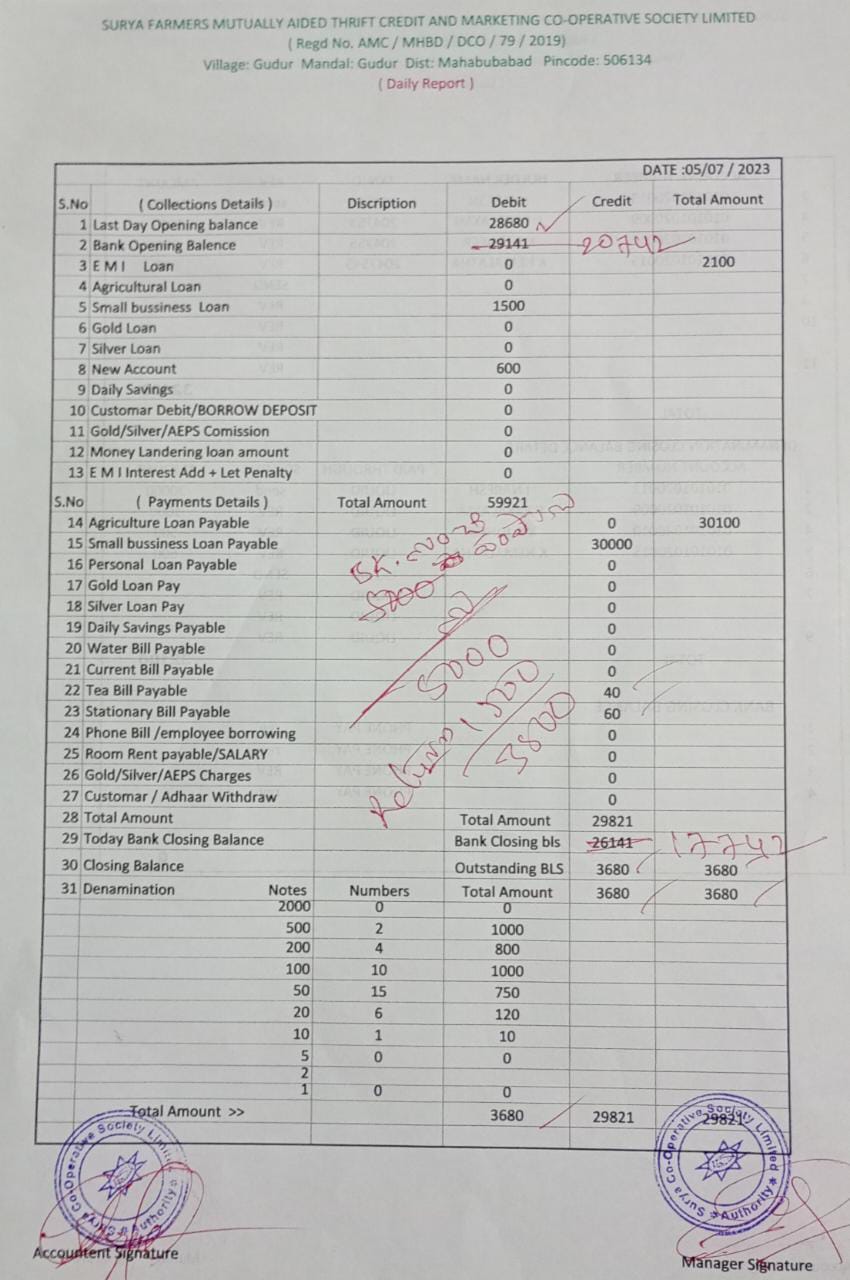 SURYA FARMERS MUTUALLY AIDED THRIFT CREDIT AND MARKETING CO-OPERATIVE SOCIETY LIMITED
( Regd No. AMC / MHBD / DCO / 79 / 2019)
Village: Gudur Mandal: Gudur Dist: Mahabubabad Pincode: 506134
( Daily Report )
DATE :05/07 / 2023
S.No ( Collections Details ) Discription Debit Credit Total Amount
1 Last Day Opening balance 28680
2 Bank Opening Balence 29141 20742
3 E M I Loan 0 2100
4 Agricultural Loan 0
5 Small bussiness Loan 1500
6 Gold Loan 0
7 Silver Loan 0
8 New Account 600
9 Daily Savings 0
10 Customar Debit/BORROW DEPOSIT 0
11 Gold/Silver/AEPS Comission 0
12 Money Landering loan amount 0
13 E M I Interest Add + Let Penalty 0
S.No ( Payments Details ) Total Amount 59921
14 Agriculture Loan Payable 0 30100
15 Small bussiness Loan Payable 30000
16 Personal Loan Payable 0
17 Gold Loan Pay 0
18 Silver Loan Pay 0
19 Daily Savings Payable 0
20 Water Bill Payable 0
5000
21 Current Bill Payable 0
22 Tea Bill Payable 40
23 Stationary Bill Payable 60
24 Phone Bill /employee borrowing 0
3800
25 Room Rent payable/SALARY 0
26 Gold/Silver/AEPS Charges 0
27 Customar / Adhaar Withdraw 0
28 Total Amount Total Amount 29821
29 Today Bank Closing Balance Bank Closing bls 26141 17742
30 Closing Balance Outstanding BLS 3680 3680
31 Denamination Notes Numbers Total Amount 3680 3680
2000 0 0
500 2 1000
200 4 800
100 10 1000
50 15 750
20 6 120
10 1 10
5 0 0
2
1 0 0
Total Amount >> 3680 29821 29821
Surya Co-Operative Society Limited * Authority *
Surya Co-Operative Society Limited * Authority *
Accountent Signature
Manager Signature